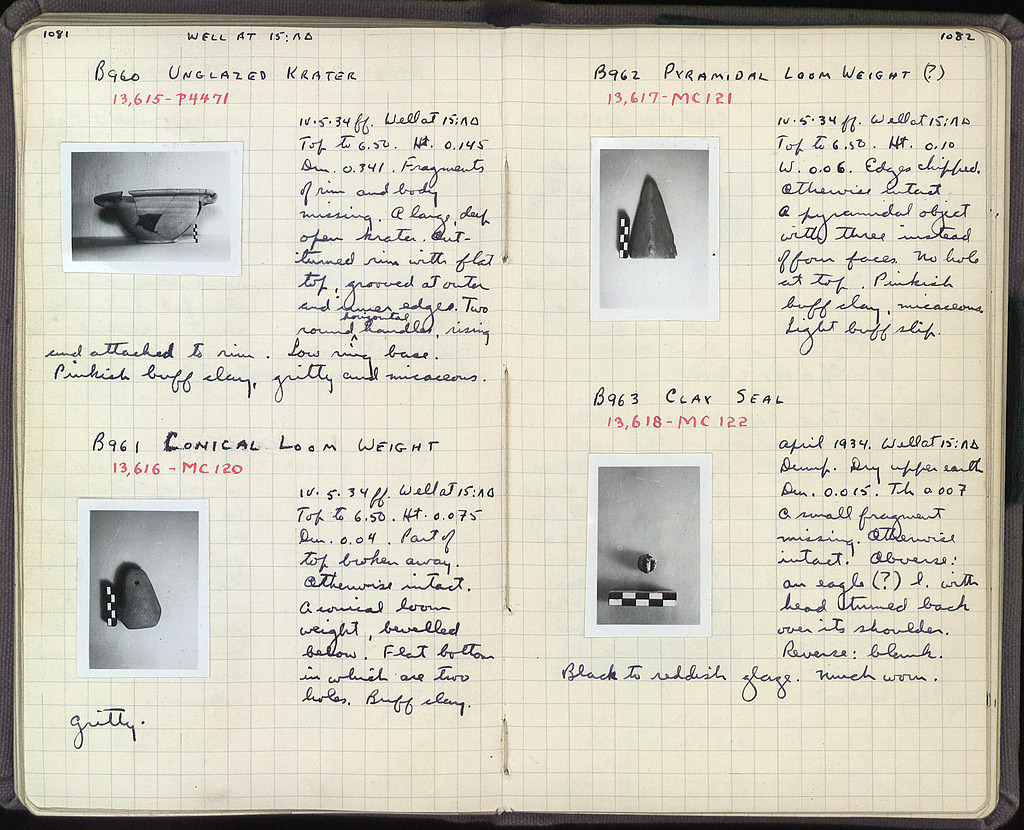 1081
WELL AT 15:ΛΔ
B960 UNGLAZED KRATER
13,615-P4471
IV.5.34 ff. Well at 15:ΛΔ
Top to 6.50. Ht. 0.145
Dm. 0.341. Fragments
of rim and body
missing. A large, deep
open krater. Out-
turned rim with flat
top, grooved at outer
and inner edges. Two
horizontal
round handles, rising
and attached to rim. Low ring base.
Pinkish buff clay, gritty and micaceous.
B961 CONICAL LOOM WEIGHT
13,616-MC120
IV.5.34 ff. Well at 15:ΛΔ
Top to 6.50. Ht. 0.075
Dm. 0.04. Part of
top broken away.
Otherwise intact.
A conical loom
weight, bevelled
below. Flat bottom
in which are two
holes. Buff clay.
gritty.
1082
B962 PYRAMIDAL LOOM WEIGHT (?)
13,617-MC121
IV.5.34 ff. Well at 15:ΛΔ
Top to 6.50. Ht. 0.10
W. 0.06. Edges chipped.
Otherwise intact
A pyramidal object
with three instead
of four faces. No hole
at top. Pinkish
buff clay, micaceous
Light buff slip.
B963 CLAY SEAL
13,618-MC122
April 1934. Well at 15:ΛΔ
Dump. Dry upper earth
Dm. 0.015. Th. 0.007
A small fragment
missing. Otherwise
intact. Obverse:
an eagle (?) l. with
head turned back
over its shoulder.
Reverse: blank.
Black to reddish glaze. Much worn.